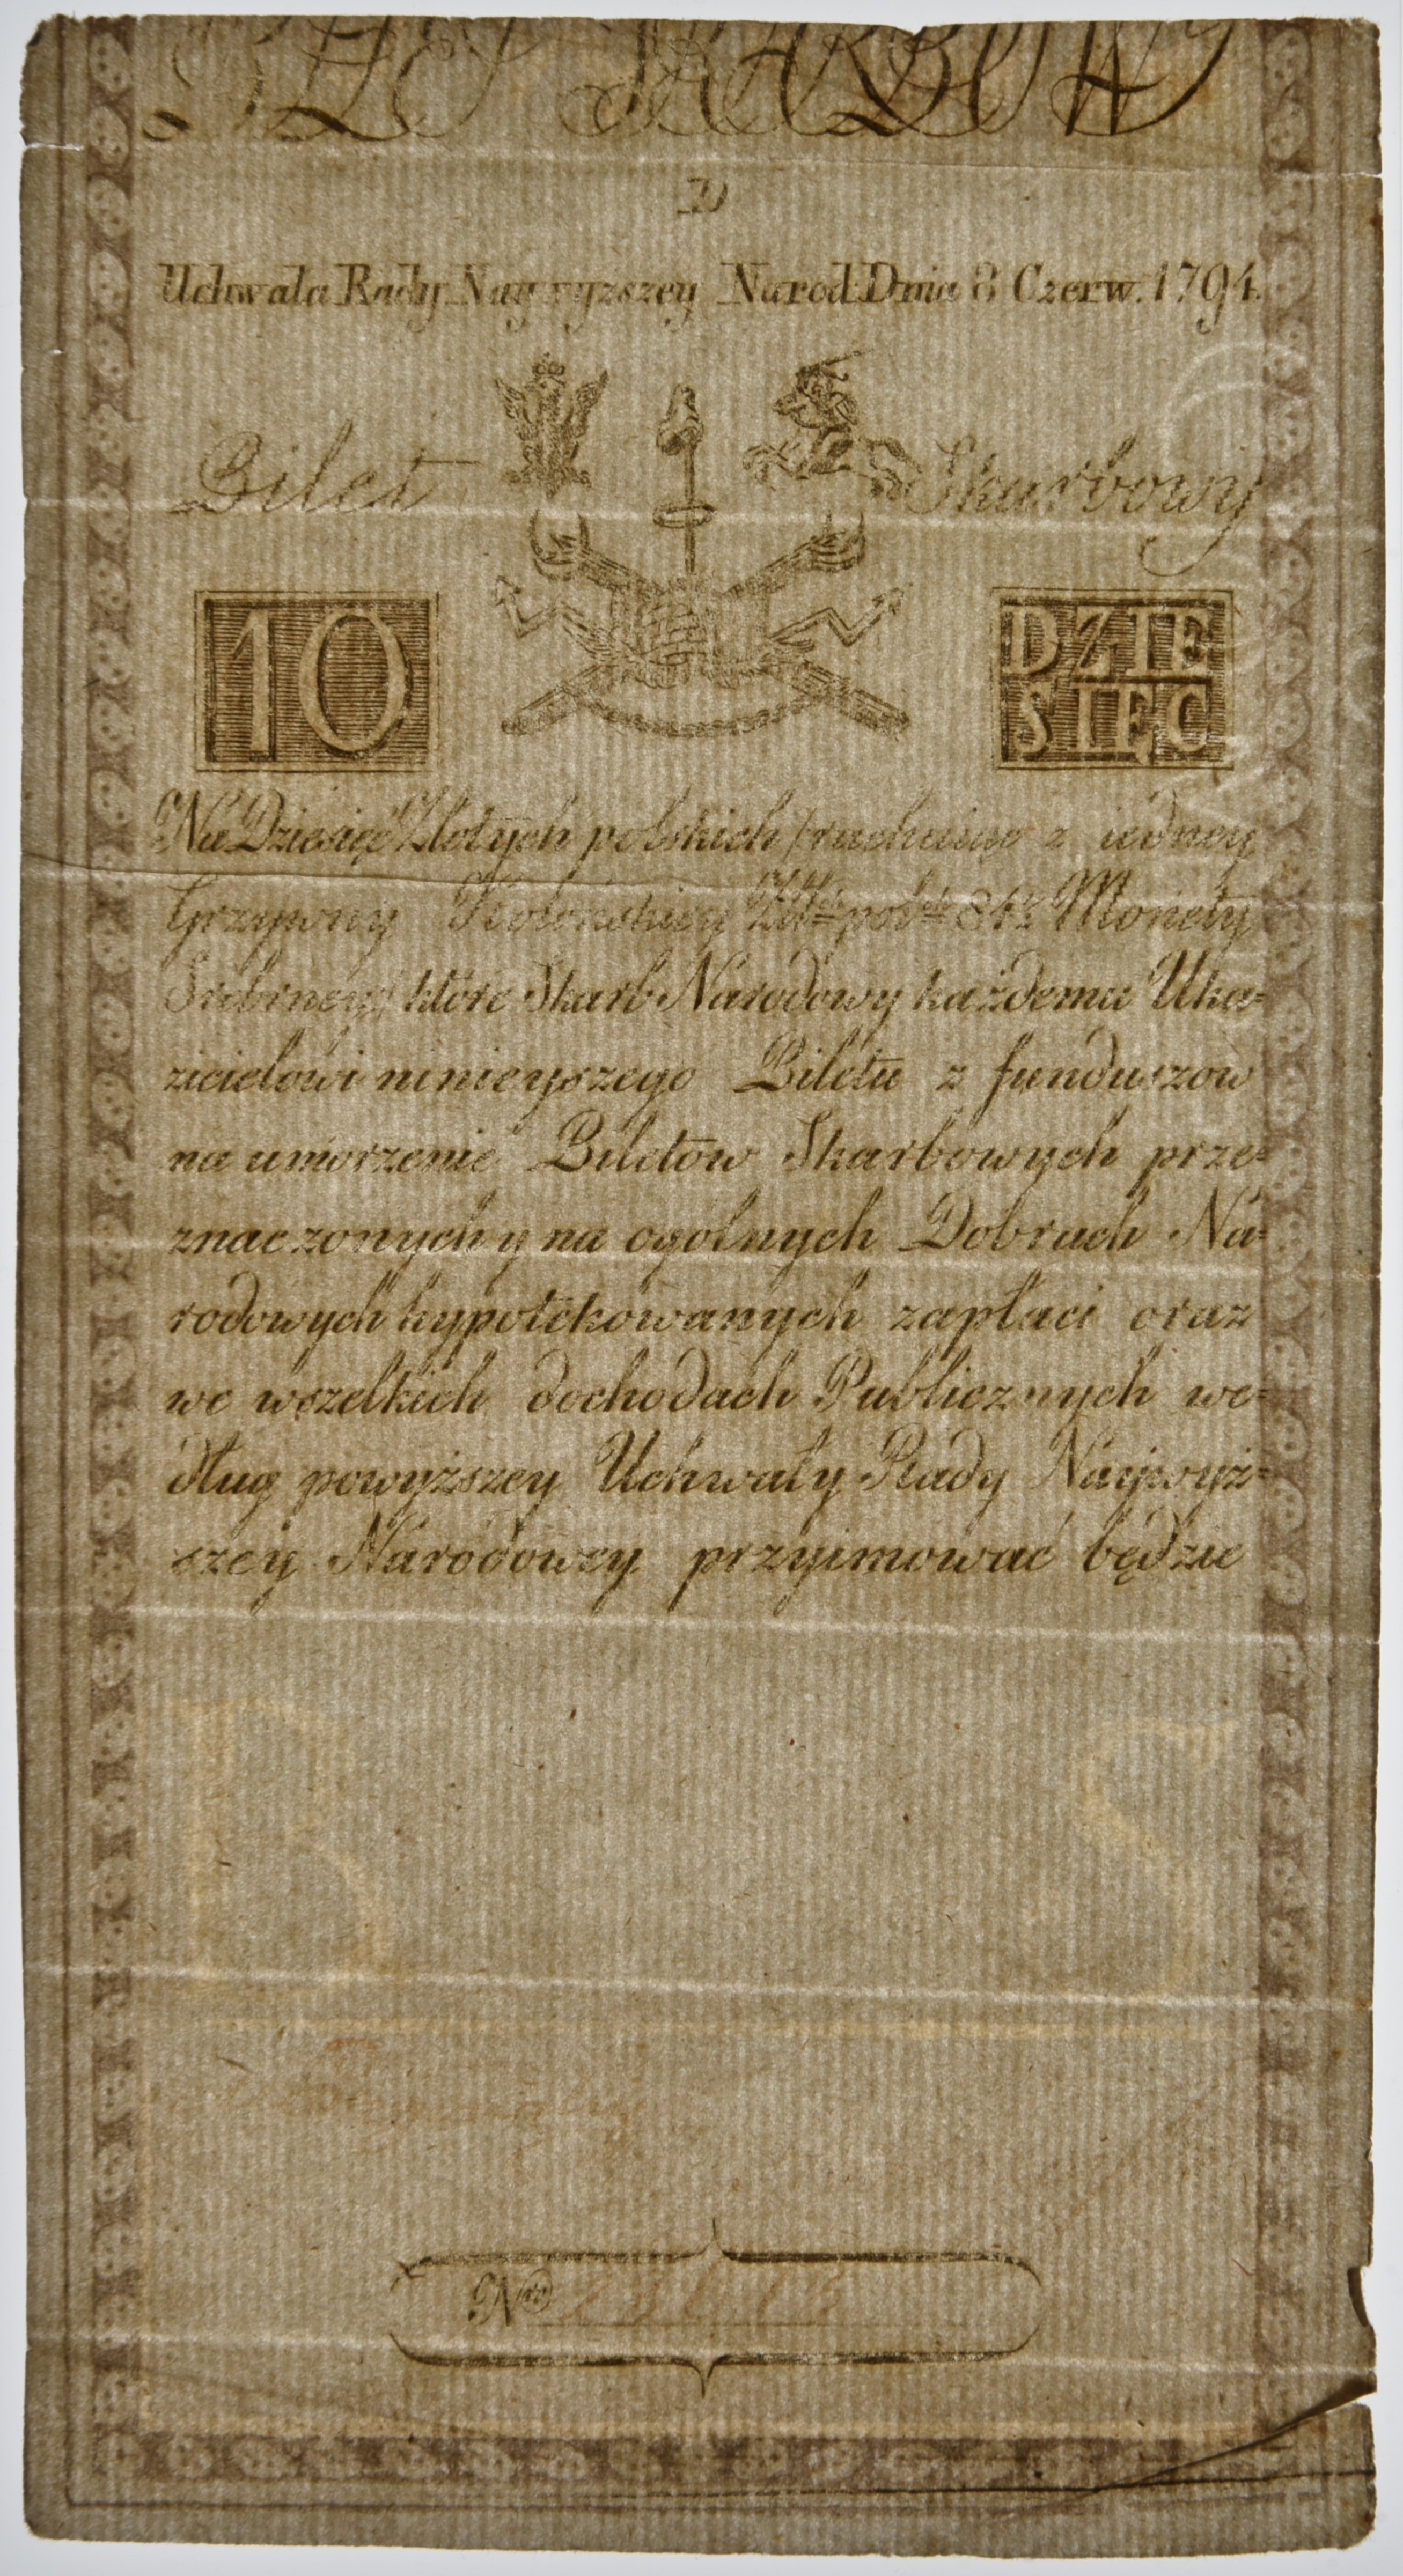 BILET SKARBOWY
D
Uchwała Rady Naywyższey Narod: Dnia 8 Czerw. 1794.
Bilet Skarbowy
10
DZIE
SIĘC
Na Dziesięć Złotych polskich (rachuiąc z iedney
Grzywny Kolońskiey Złł: pol: 84½ Monety
Srebrney) które Skarb Narodowy każdemu Uka=
zicielowi ninieyszego Biletu z funduszow
na umorzenie Biletow Skarbowych prze=
znaczonych y na ogolnych Dobrach Na=
rodowych hypotekowanych zapłaci oraz
we wszelkich dochodach Publicznych we=
dług powyższey Uchwały Rady Naywyż=
szey Narodowey przyimować będzie
B S
Nro